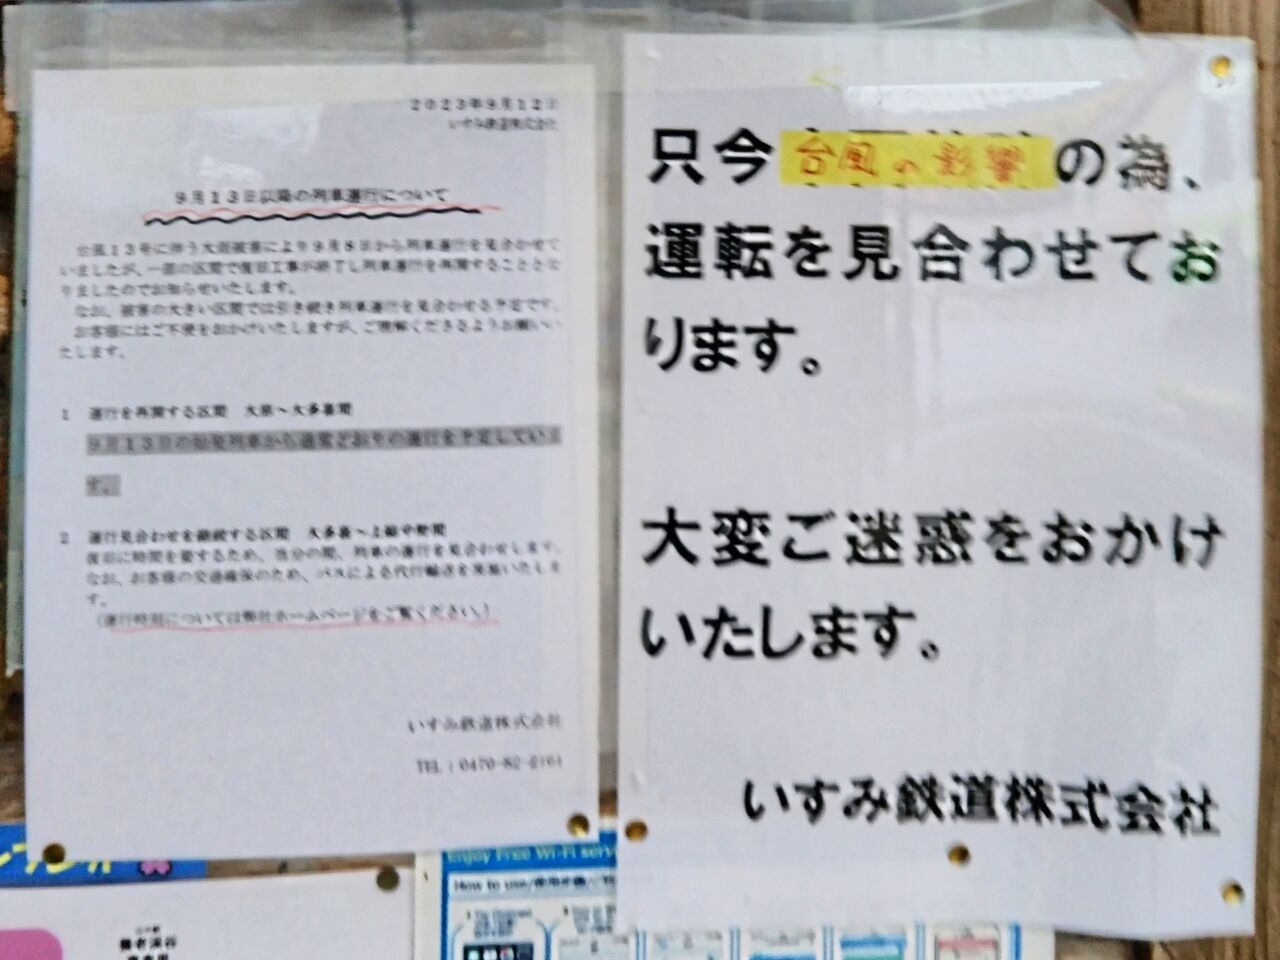 2023年9月12日
いすみ鉄道株式会社
9月13日以降の列車運行について
台風13号に伴う大雨被害により9月8日から列車運行を見合わせて
いましたが、一部の区間で復旧工事が終了し列車運行を再開することとな
りましたのでお知らせいたします。
なお、被害の大きい区間では引き続き列車運行を見合わせる予定です。
お客様にはご不便をおかけいたしますが、ご理解くださるようお願いい
たします。
1 運行を再開する区間 大原～大多喜間
9月13日の始発列車から通常どおりの運行を予定していま
す。
2 運行見合わせを継続する区間 大多喜～上総中野間
復旧に時間を要するため、当分の間、列車の運行を見合わせします。
なお、お客様の交通確保のため、バスによる代行輸送を実施いたしま
す。
(運行時刻については弊社ホームページをご覧ください。)
いすみ鉄道株式会社
TEL：0470-82-2161
只今台風の影響の為、
運転を見合わせてお
ります。
大変ご迷惑をおかけ
いたします。
いすみ鉄道株式会社
Enjoy Free Wi-Fi serv
How to use/使用步骤/
養老渓谷